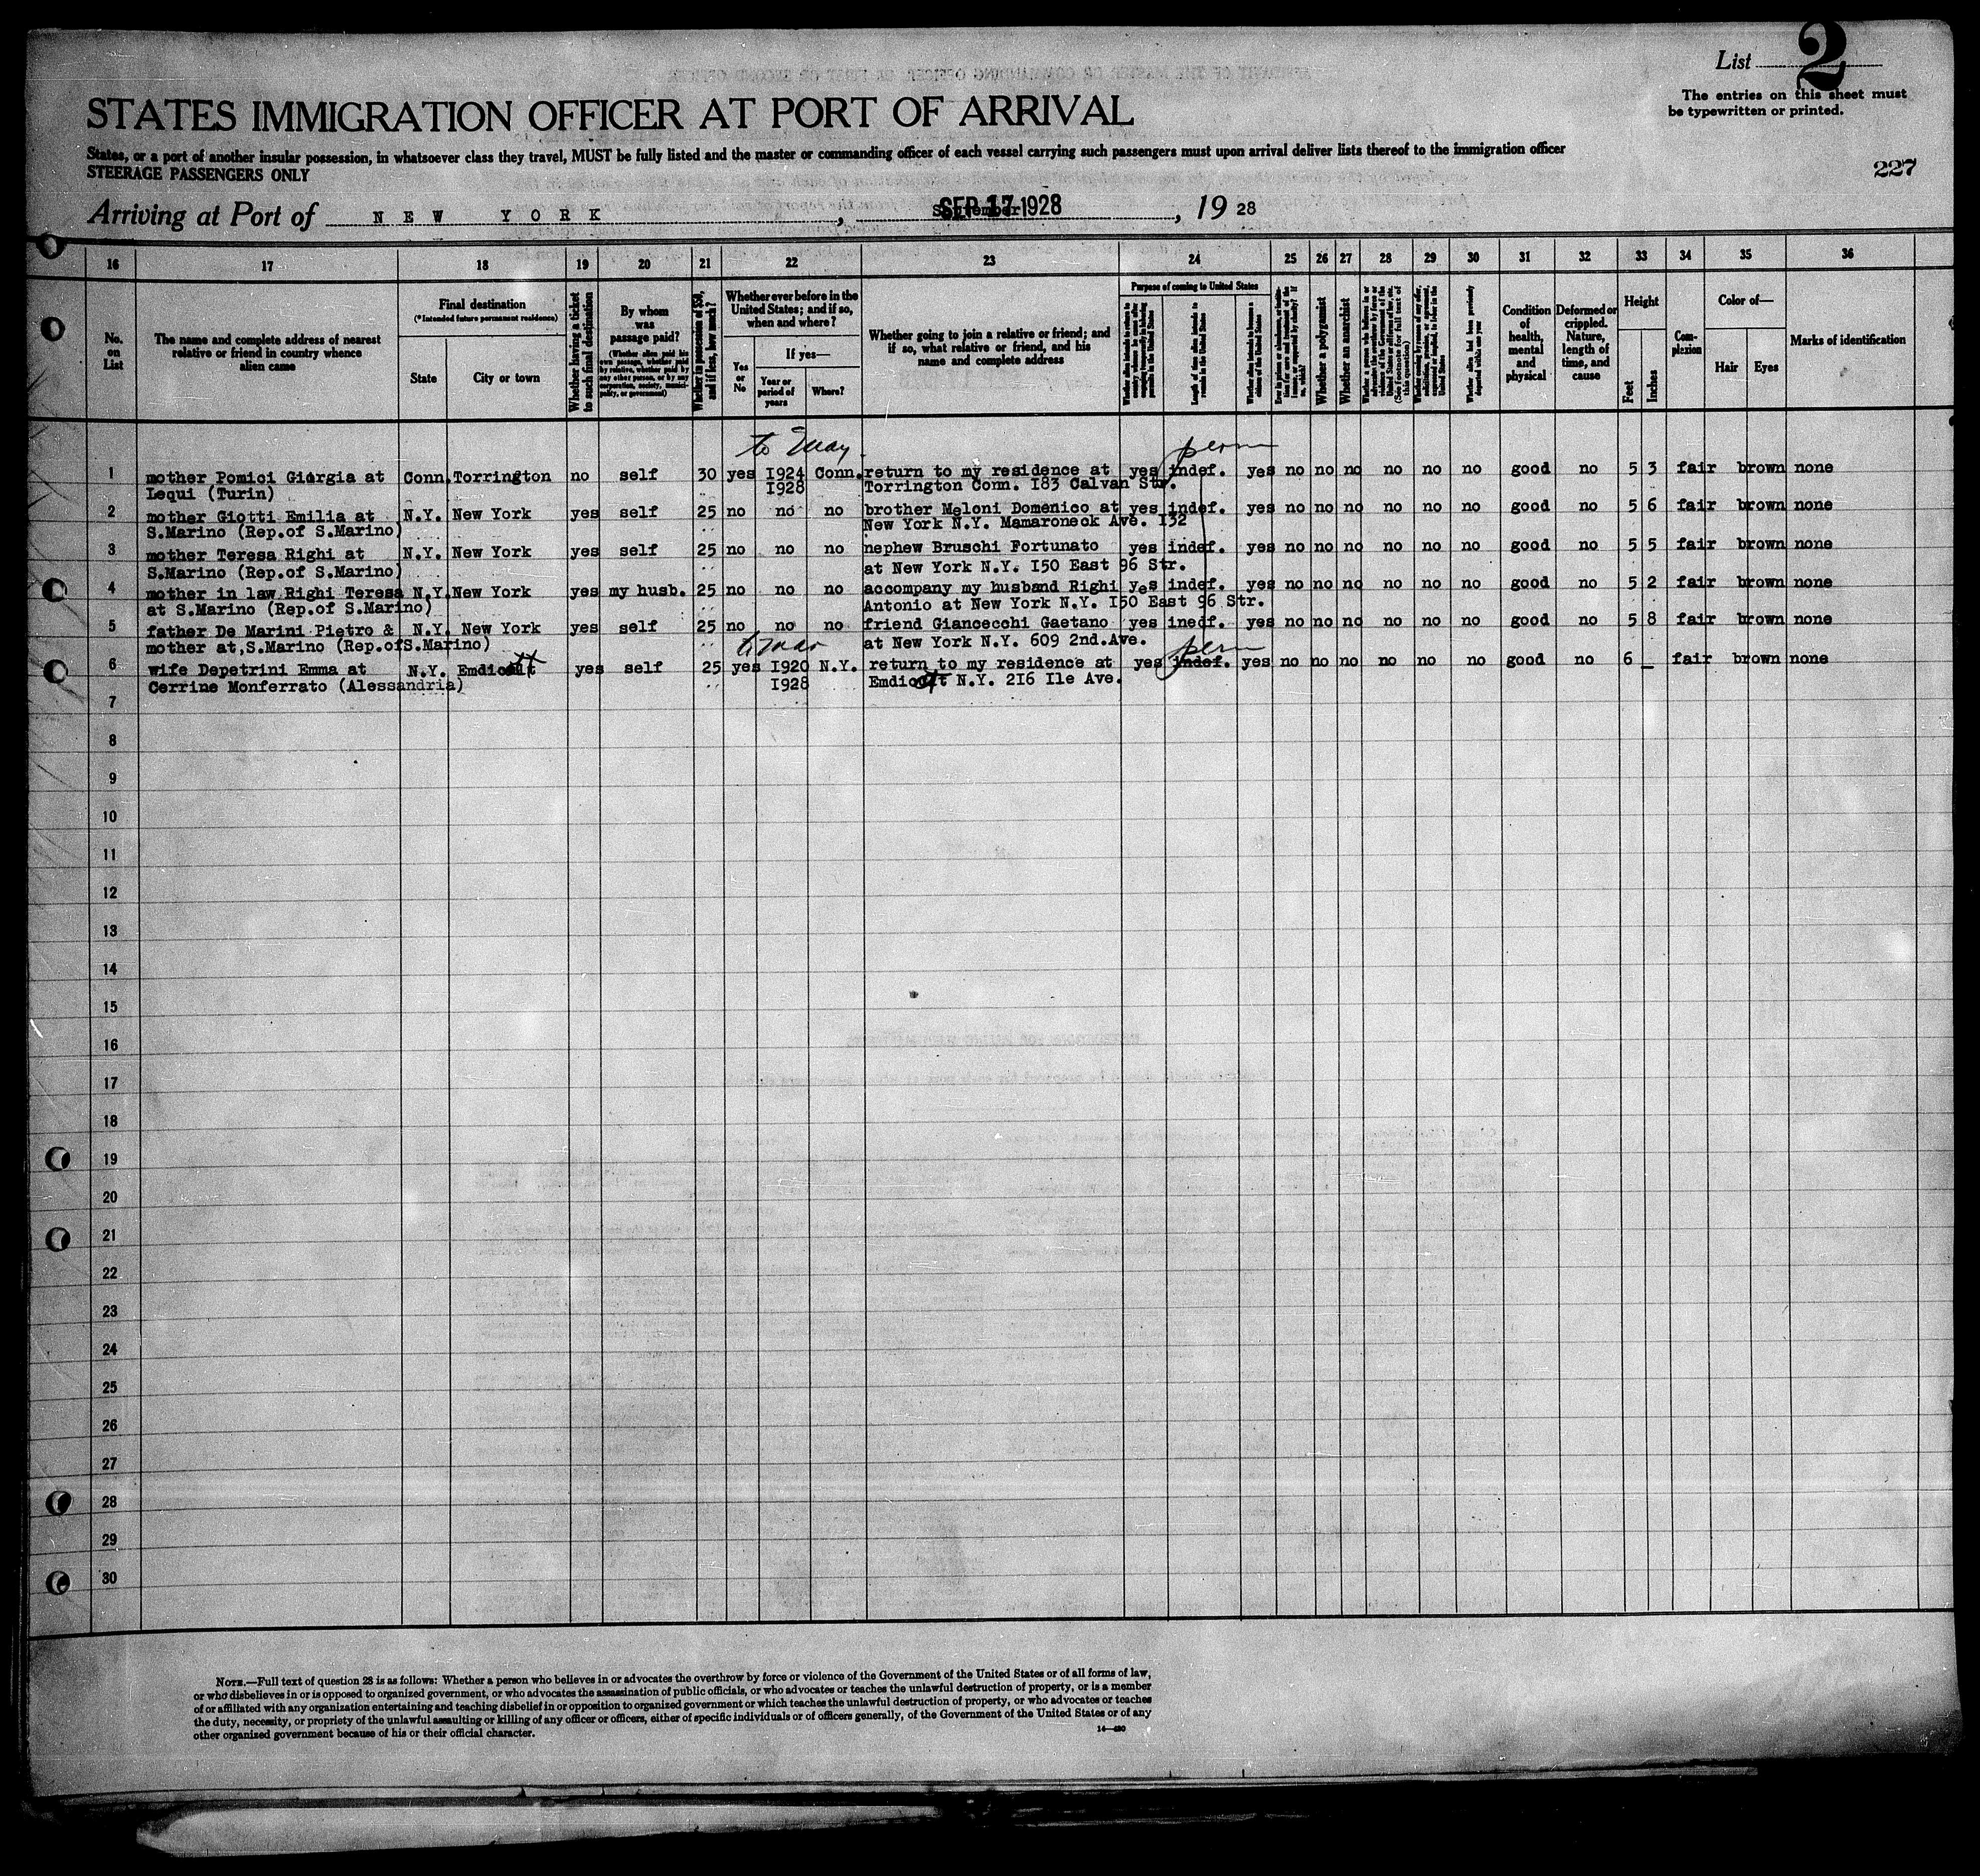 List 2
The entries on this sheet must
be typewritten or printed.
STATES IMMIGRATION OFFICER AT PORT OF ARRIVAL
States, or a port of another insular possession, in whatsoever class they travel, MUST be fully listed and the master or commanding officer of each vessel carrying such passengers must upon arrival deliver lists thereof to the immigration officer
STEERAGE PASSENGERS ONLY
227
Arriving at Port of NEW YORK, SEP 17 1928, 19 28
16 17 18 19 20 21 22 23 24 25 26 27 28 29 30 31 32 33 34 35 36
No. on List
The name and complete address of nearest relative or friend in country whence alien came
Final destination
(*Intended future permanent residence)
State
City or town
Whether having a ticket to such final destination
By whom was passage paid?
(Whether alien paid his own passage, whether paid by relative, whether paid by any other person, or by any corporation, society, municipality, or government)
Whether in possession of $50, and if less, how much?
Whether ever before in the United States; and if so, when and where?
Yes or No
If yes—
Year or period of years
Where?
Whether going to join a relative or friend; and if so, what relative or friend, and his name and complete address
Purpose of coming to United States
Length of time alien intends to remain in the United States
Whether a polygamist
Whether an anarchist
Condition of health, mental and physical
Deformed or crippled. Nature, length of time, and cause
Height
Feet
Inches
Complexion
Color of—
Hair
Eyes
Marks of identification
to May perm
1 mother Pomici Giorgia at Conn. Torrington no self 30 yes 1924 Conn. return to my residence at yes indef. yes no no no no no no good no 5 3 fair brown none
Lequi (Turin) 1928 Torrington Conn. 183 Calvan Str.
2 mother Giotti Emilia at N.Y. New York yes self 25 no no no brother Meloni Domenico at yes indef. yes no no no no no no good no 5 6 fair brown none
S.Marino (Rep.of S.Marino) New York N.Y. Mamaroneck Ave. 132
3 mother Teresa Righi at N.Y. New York yes self 25 no no no nephew Bruschi Fortunato yes indef. yes no no no no no no good no 5 5 fair brown none
S.Marino (Rep.of S.Marino) at New York N.Y. 150 East 96 Str.
4 mother in law Righi Teresa N.Y. New York yes my husb. 25 no no no accompany my husband Righi yes indef. yes no no no no no no good no 5 2 fair brown none
at S.Marino (Rep.of S.Marino) Antonio at New York N.Y. 150 East 96 Str.
5 father De Marini Pietro & N.Y. New York yes self 25 no no no friend Giancecchi Gaetano yes inedf. yes no no no no no no good no 5 8 fair brown none
mother at,S.Marino (Rep.ofS.Marino) at New York N.Y. 609 2nd.Ave.
perm
6 wife Depetrini Emma at N.Y. Emdicott yes self 25 yes 1920 N.Y. return to my residence at yes indef. yes no no no no no no good no 6 _ fair brown none
Cerrine Monferrato (Alessandria) 1928 Emdicott N.Y. 216 Ile Ave.
7
8
9
10
11
12
13
14
15
16
17
18
19
20
21
22
23
24
25
26
27
28
29
30
NOTE.—Full text of question 28 is as follows: Whether a person who believes in or advocates the overthrow by force or violence of the Government of the United States or of all forms of law,
or who disbelieves in or is opposed to organized government, or who advocates the assassination of public officials, or who advocates or teaches the unlawful destruction of property, or is a member
of or affiliated with any organization entertaining and teaching disbelief in or opposition to organized government or which teaches the unlawful destruction of property, or who advocates or teaches
the duty, necessity, or propriety of the unlawful assaulting or killing of any officer or officers, either of specific individuals or of officers generally, of the Government of the United States or of any
other organized government because of his or their official character.